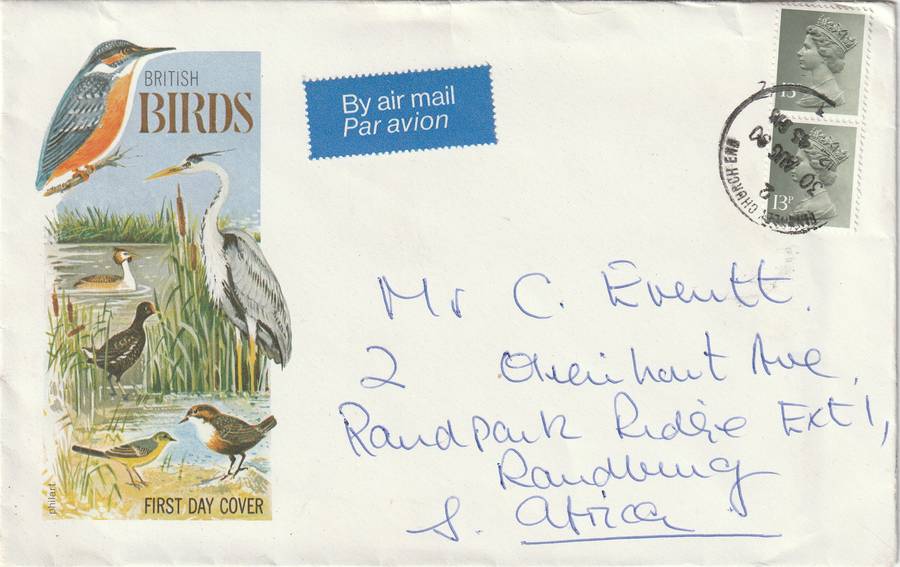 BRITISH
BIRDS
By air mail
Par avion
13
13P
CHURCH END
30 AUG 80
Mr C. Everitt.
2 Avenue,
Randpark Ridge Ext 1,
Randburg
S. Africa
philart
FIRST DAY COVER